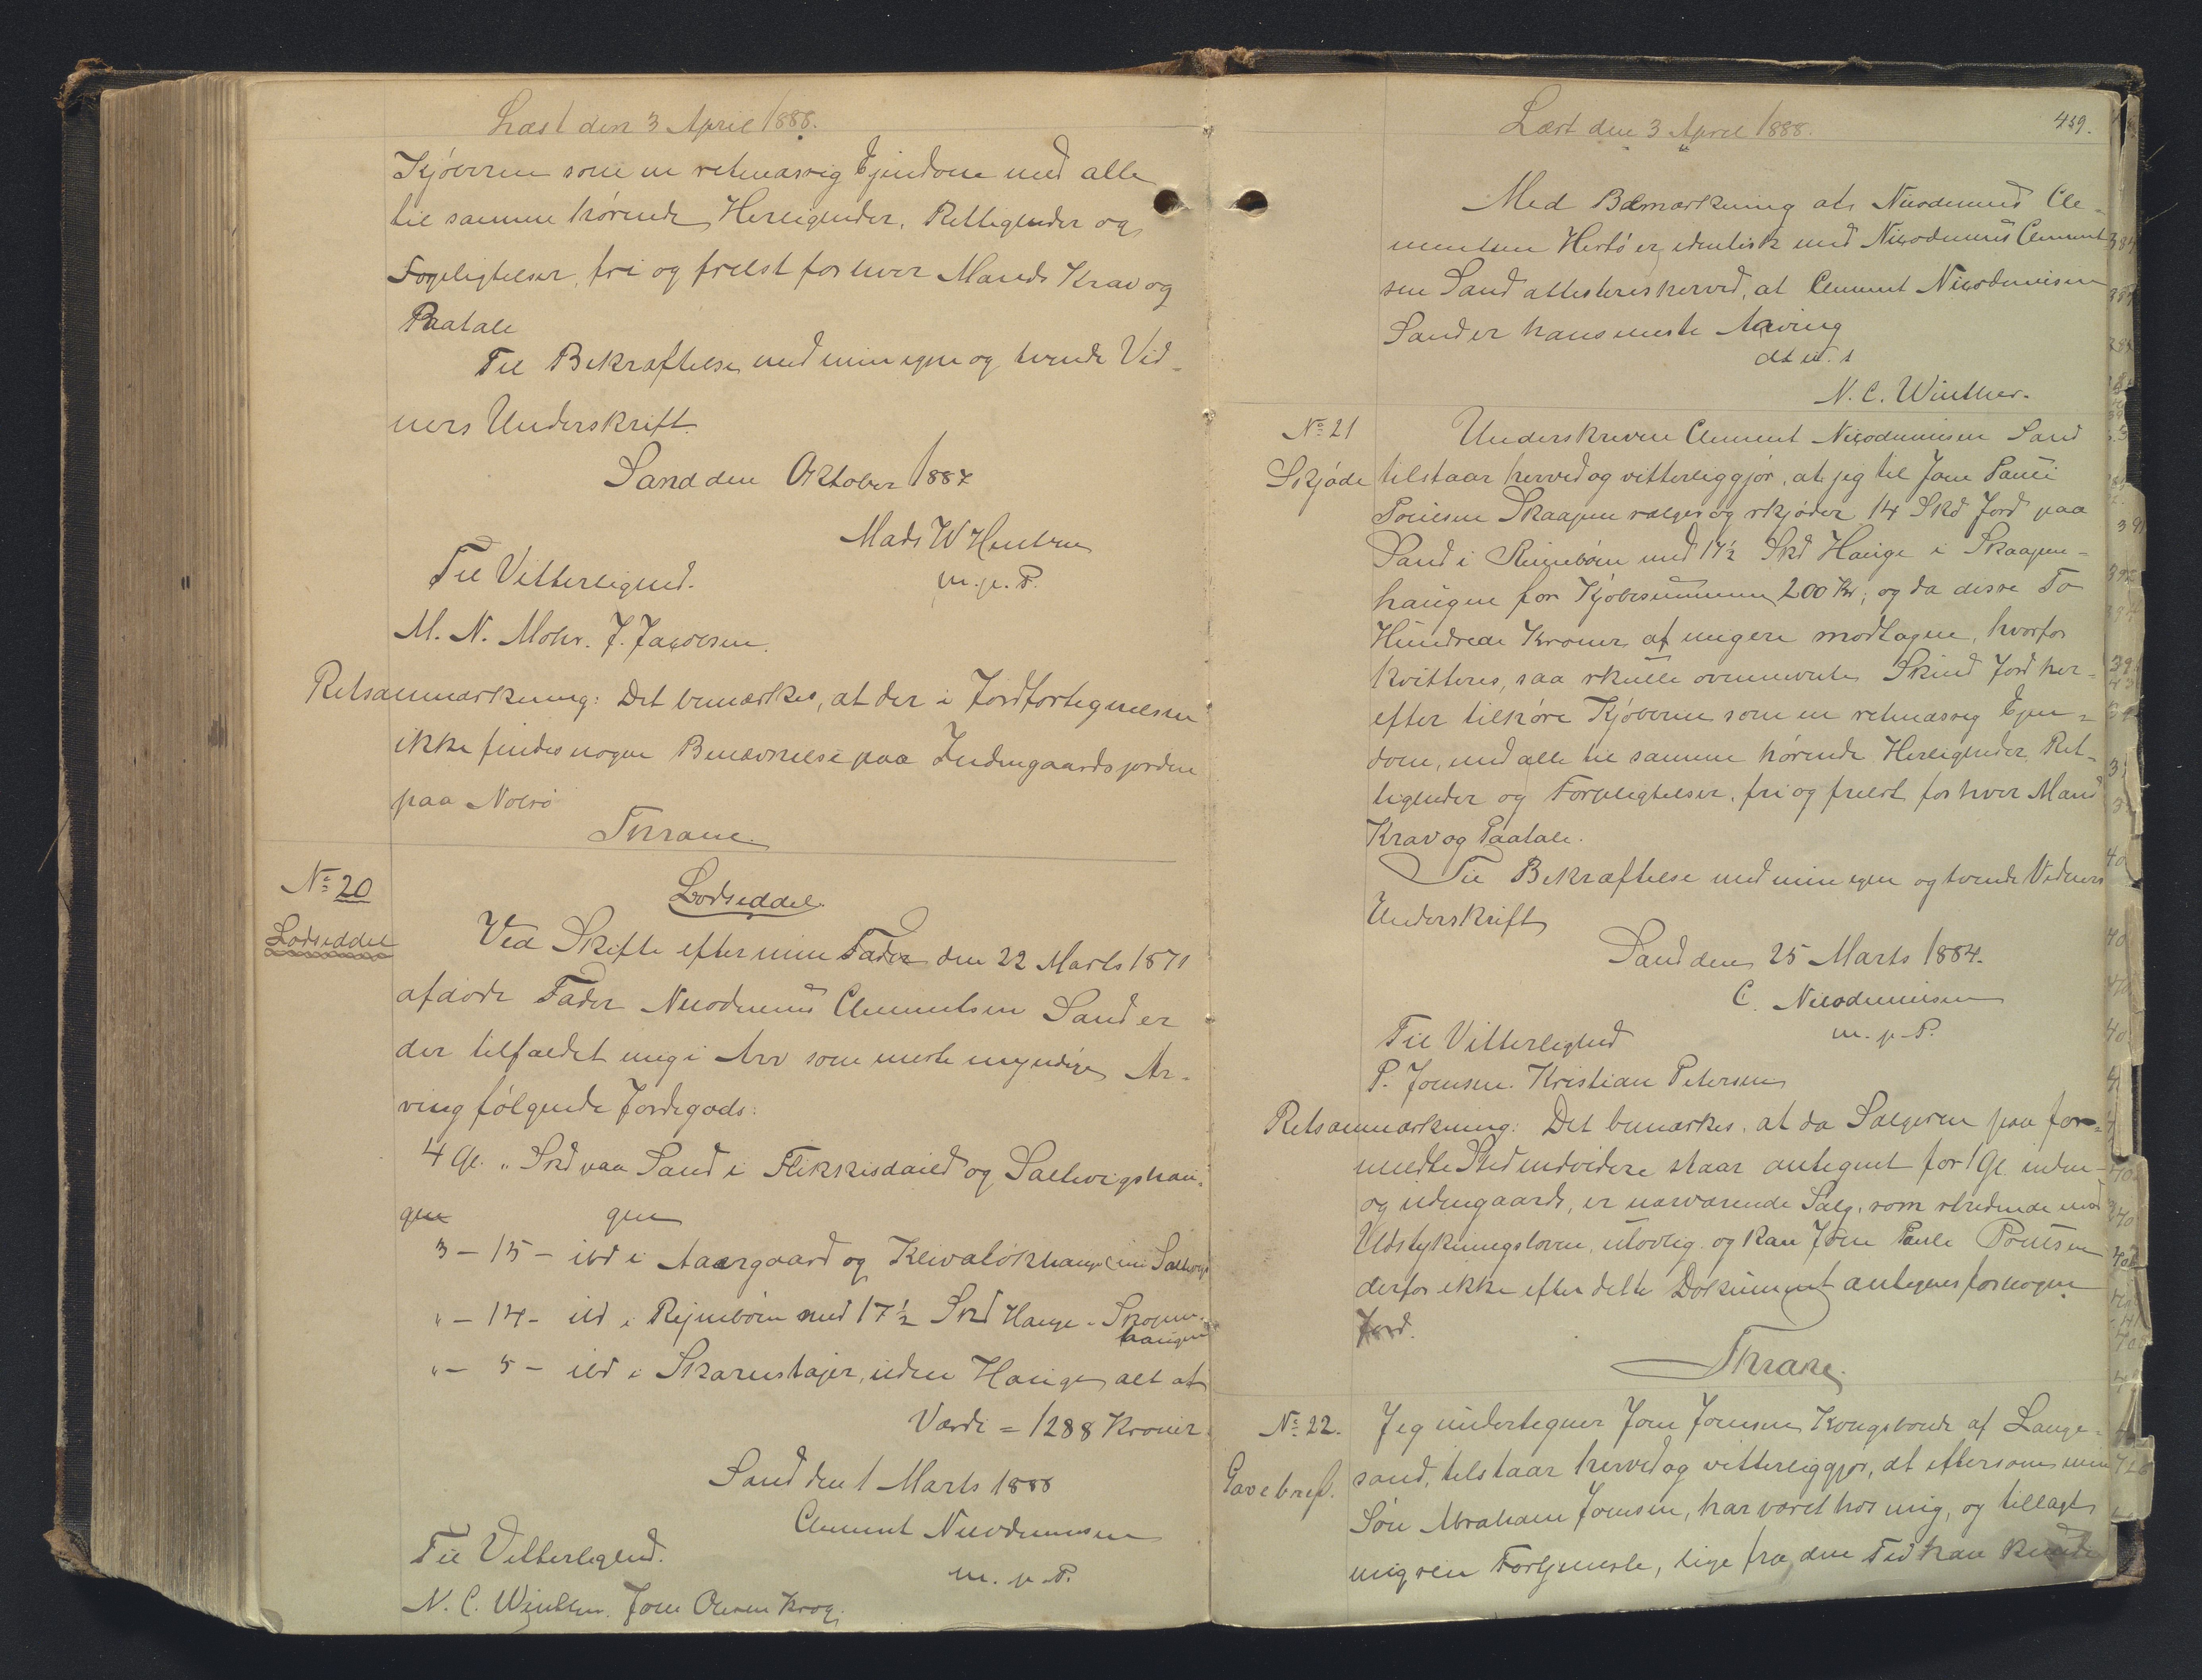 Læst den 3 April 1888.
Kjøberen som en retmæssig Ejendom med alle
til samme hørende Herligheder, Rettigheder og
Forpligtelser, fri og frelst for hver Mands Krav og
Paatale
Til Bekræftelse med min egen og tvende Vid-
ners Underskrift.
Sand den Oktober 1887
Mads W
m. p. P.
Til Vitterlighed.
M. N. Mohr. J. Jacobsen.
Retsanmærkning: Det bemærkes, at der i Jordfortegnelsen
ikke findes nogen Benævnelse paa Indengaardsjorden
paa Nolsø
Thrane.
No 20
Lodseddel
Lodseddel.
Ved Skifte efter min Fader den 22 Marts 1871
afdøde Fader Nicodemus Clementsen Sand er
der tilfaldet mig i Arv som meste myndige Ar-
ving følgende Jordegods:
4 Gl. " Skd paa Sand i Flikkisdail og Saltvigshau-
gen gen
3 - 15 - ibd i Aargaard og
" - 14 - ibd i Rejnebøen med 17½ Skd Hauge i Skopun-
haugen
" - 5 - ibd i Skarustajer, uden Hauge alt at
Værdi = 1288 Kroner.
Sand den 1 Marts 1888
Clement Nicodemussen
m. p. P.
Til Vitterlighed.
N. C. Winther. Joen Olesen Krog.
Læst den 3 April 1888.
459.
Med Bemærkning at Nicodemus Cle-
mentsen Hestø er identisk med Nicodemus Clement-
sen Sand attesteres herved, at Clement Nicodemisen
Sand er hans meste Arving
dt u. s
N. C. Winther.
No 21
Skjøde
Underskreven Clement Nicodemisen Sand
tilstaar herved og vitterliggjør, at jeg til Joen Pauli
Poulsen Skaapen sælger og skjøder 14 Skd Jord paa
Sand i Reinebøen med 17½ Skd Hauge i Skaapen-
haugen for Kjøbesummen 200 Kr; og da disse To
Hundrede Kroner af mig ere modtagne, hvorfor
kvitteres, saa skulle ovennævnte Skind Jord her-
efter tilhøre Kjøberen som en retmæssig Ejen-
dom, med alle til samme hørende Herligheder, Ret-
tigheder og Forpligtelser, fri og frelst for hver Mand
Krav og Paatale.
Til Bekræftelse med min egen og tvende Vidners
Underskrift
Sand den 25 Marts 1884.
C. Nicodemusen
m. p. P.
Til Vitterlighed
P. Joensen. Kristian Petersen
Retsanmærkning: Det bemærkes, at da Sælgeren paa for-
meldte Sted endvidere staar antegnet for 1 Gl. inden-
og udengaards, er nærværende Salg, som stridende mod
Udstykningsloven, ulovlig og kan Joen Paule Poulsen
derfor ikke efter dette Dokument antegnes for nogen
Jord.
Thrane.
No 22.
Gavebref.
Jeg undertegner Joen Joensen Kongsbonde af Lange-
sand, tilstaar herved og vitterliggjør, at eftersom min
Søn Abraham Joensen, har været hos mig, og tillagt
mig sin Fortjeneste, lige fra den Tid han kunde